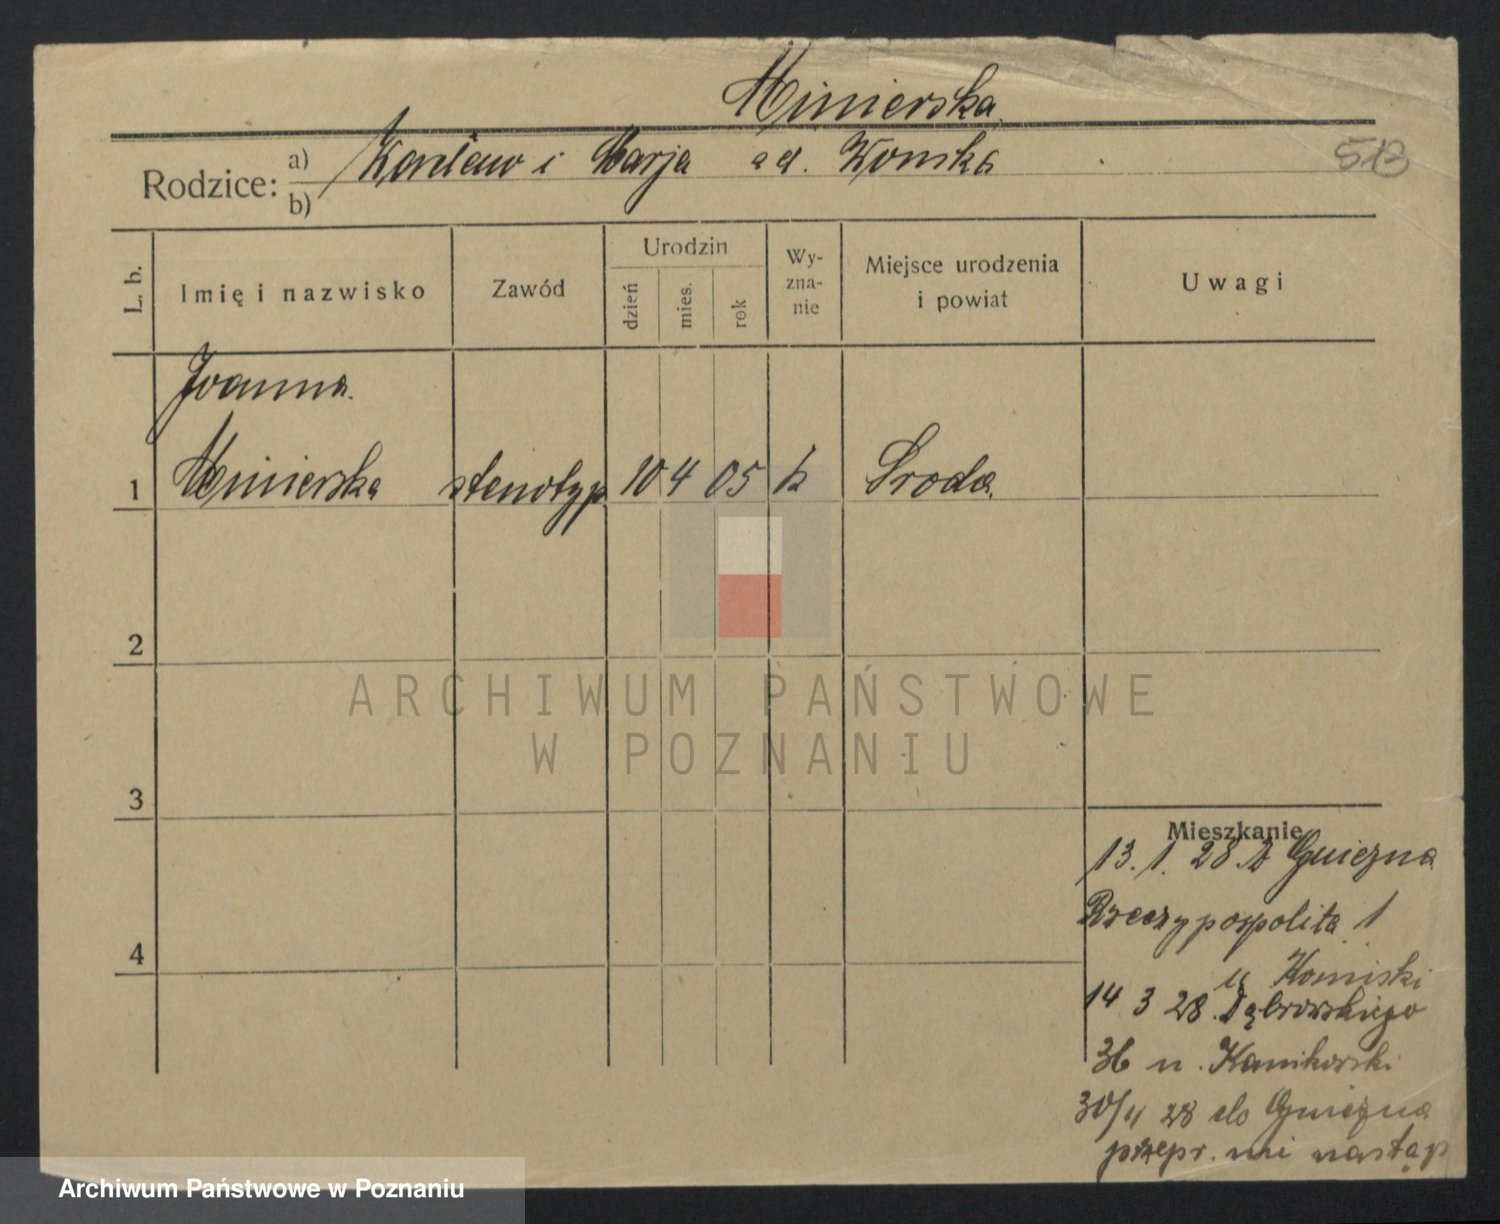 Minierska
Rodzice: a) i Marja
b)
513
L. b.
Imię i nazwisko
Zawód
Urodzin
dzień
mies.
rok
Wy-
zna-
nie
Miejsce urodzenia
i powiat
Uwagi
Joanna
1 Minierska stenotyp 10 4 05 k Sroda
2
3
4
ARCHIWUM PAŃSTWOWE
W POZNANIU
Mieszkanie
13. 1. 28 z Gniezna
Rzeczypospolita 1
u
14 3 28. Dąbrowskiego
36 u.
30/4 28 do Gniezna
przepr. nie nastąp
Archiwum Państwowe w Poznaniu